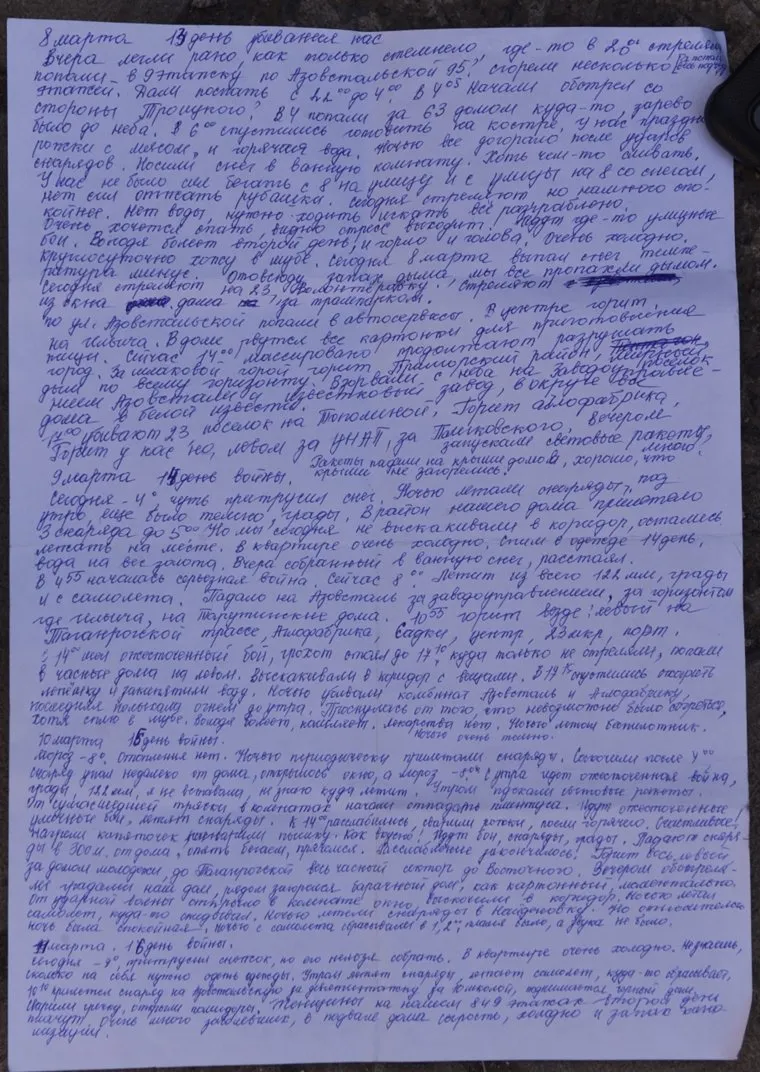 8 марта 13 день убивания нас
Вчера легли рано, как только стемнело, где-то в 20°° стреляли
попали в 9 этапку по Азовстальской 95? сгорели несколько
этажей. Дали поспать с 22°° до 4°°. В 4⁰⁵ начали обстрел со
стороны Троицкого? В 4 попали за 63 домом куда-то, зарево
было до неба. В 6°° спустились готовить на костре, у нас праздник
рожки с мясом, и горячая вода. Ночью все догорало после ударов
снарядов. Носили снег в ванную комнату. Хоть чем-то сливать.
У нас не было сил бегать с 8 на улицу и с улицы на 8 со снегом,
нет сил отжать рубашки. Сегодня стреляют но намного спо-
койнее. Нет воды, нужно ходить искать все разграблено.
Очень хочется спать, видно стресс выходит. Идут где-то уличные
бои. Володя болеет второй день, и горло и голова. Очень холодно.
Круглосуточно хожу в шубе. Сегодня 8 марта выпал снег, темпе-
ратура минус. Отовсюду запах дыма, мы все пропахли дымом.
Сегодня стреляют на 23, Волонтеровку, стреляют
из окна дома за трампарком.
по ул. Азовстальской попали в автосервисы. В центре горит,
на Ильича. В доме рвутся все картонки для приготовления
пищи. Сейчас 14°° массировано продолжают разрушать
город. За шлаковой горой горит Приморский район,
дым по всему горизонту. Взорвали с неба на Заводоуправле-
нием Азовстали и известковый завод, в округе все
дома в белой извести. Горит аглофабрика,
17°° убивают 23 поселок на Тополиной,
Горит у нас на левом за УНАП, за Полковского, вечером
запускали световые ракеты,
Ракеты падали на крыши домов, хорошо, что
крыши не загорелись.
9 марта 14 день войны.
Сегодня -4°, чуть притрусил снег. Ночью летали снаряды, под
утро еще было темно, грады. В район нашего дома прилетало
3 снаряда до 5°° Но мы сегодня не выскакивали в коридор, остались
лежать на месте. В квартире очень холодно, спим в одежде 14 день,
вода на вес золота. Вчера собранный в ванную снег, растаял.
В 4⁵⁵ началась серьезная война. Сейчас 8°° Летит из всего 122 мм, грады
и с самолета. Падало на Азовсталь за заводоуправлением, за горизонтом
где Ильича, на Тарутинские дома. 10⁵⁵ горит везде! левый на
Таганрогской трассе, Аглофабрика, Садки, центр, 23 мкр, порт.
С 14°° шел ожесточенный бой, грохот стоял до 17¹⁰, куда только не стреляли, попали
в частные дома на левом. Выскакивали в коридор с вещами. В 17¹⁵ спустились жарить
лепешку и закипятили воду. Ночью убивали комбинат Азовсталь и Аглофабрику,
последняя полыхала огнем до утра. Проснулась от того, что невозможно было согреться,
хотя сплю в шубе. Володя болеет, кашляет. Лекарства нет. Ночью летал беспилотник.
Ночью очень темно.
10 марта 15 день войны.
Мороз -8°, Отопления нет. Ночью периодически прилетали снаряды. Соскочили после 4°°
снаряд упал недалеко от дома, открылось окно, а мороз -8°. С утра идет ожесточенная война,
грады, 122 мм, я не вставала, не знаю куда летит. Утром пускали световые ракеты.
От сумасшедшей тряски в комнатах начали отпадать плинтуса. Идут ожесточенные
уличные бои, летят снаряды. К 14°° расслабились, сварили рожки, поели горячего. Счастливые!
Нагрели кипяточек Как вкусно! Идут бои, снаряды, грады. Падают снаря-
ды в 300 м. от дома, опять бегаем, прячемся. Расслабление закончилось. Горит весь левый
за домом молодежи, до Таганрогской весь частный сектор до Восточного. Вечером обстреля-
ли градами наш дом, рядом загорелся барачный дом, как картонный, моментально.
От ударной волны открыло в комнате окно, выскочили в коридор. Ночью летал
самолет, куда-то сбрасывал. Ночью летели снаряды в Найденовку. Но относительно
ночь была спокойная, ночью с самолета сбрасывали в 1, 2, пламя было, а звука не было.
11 марта. 16 день войны.
Сегодня -9°, притрусил снежок, но его нельзя собрать. В квартире очень холодно. Не знаешь,
сколько на себя нужно одеть одежды. Утром летят снаряды, летает самолет, куда-то сбрасывает,
10¹⁰ прилетел снаряд на Азовстальскую за девятиэтажку за поднимается черный дым.
Сварили гречку, открыли помидоры. Женщины на нашем 8 и 9 этажах второй день
плачут. Очень много заболевших, в подвале дома сырость, холодно и запах кана-
лизации.